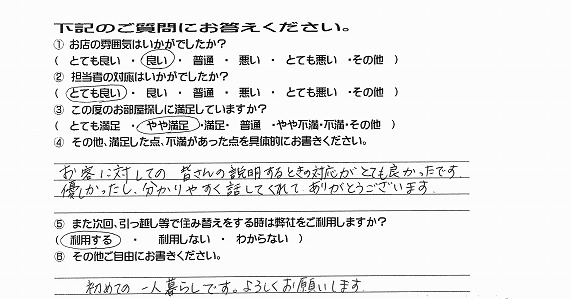 下記のご質問にお答えください。
① お店の雰囲気はいかがでしたか？
( とても良い ・ 良い ・ 普通 ・ 悪い ・ とても悪い ・その他 )
② 担当者の対応はいかがでしたか？
( とても良い ・ 良い ・ 普通 ・ 悪い ・ とても悪い ・その他 )
③ この度のお部屋探しに満足していますか？
( とても満足 ・ やや満足 ・満足・ 普通 ・やや不満・不満・その他 )
④ その他、満足した点、不満があった点を具体的にお書きください。
お客に対しての 皆さんの説明するときの対応がとても良かったです
優しかったし、分かりやすく話してくれて ありがとうございます.
⑤ また次回、引っ越し等で住み替えをする時は弊社をご利用しますか？
( 利用する ・ 利用しない ・ わからない )
⑥ その他ご自由にお書きください。
初めての 一人暮らしです。よろしくお願いします.